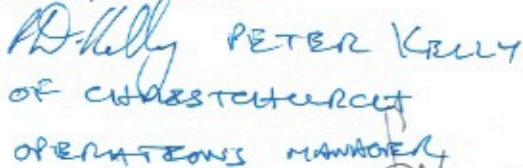 PD Kelly PETER KELLY
OF CHRISTCHURCH
OPERATIONS MANAGER